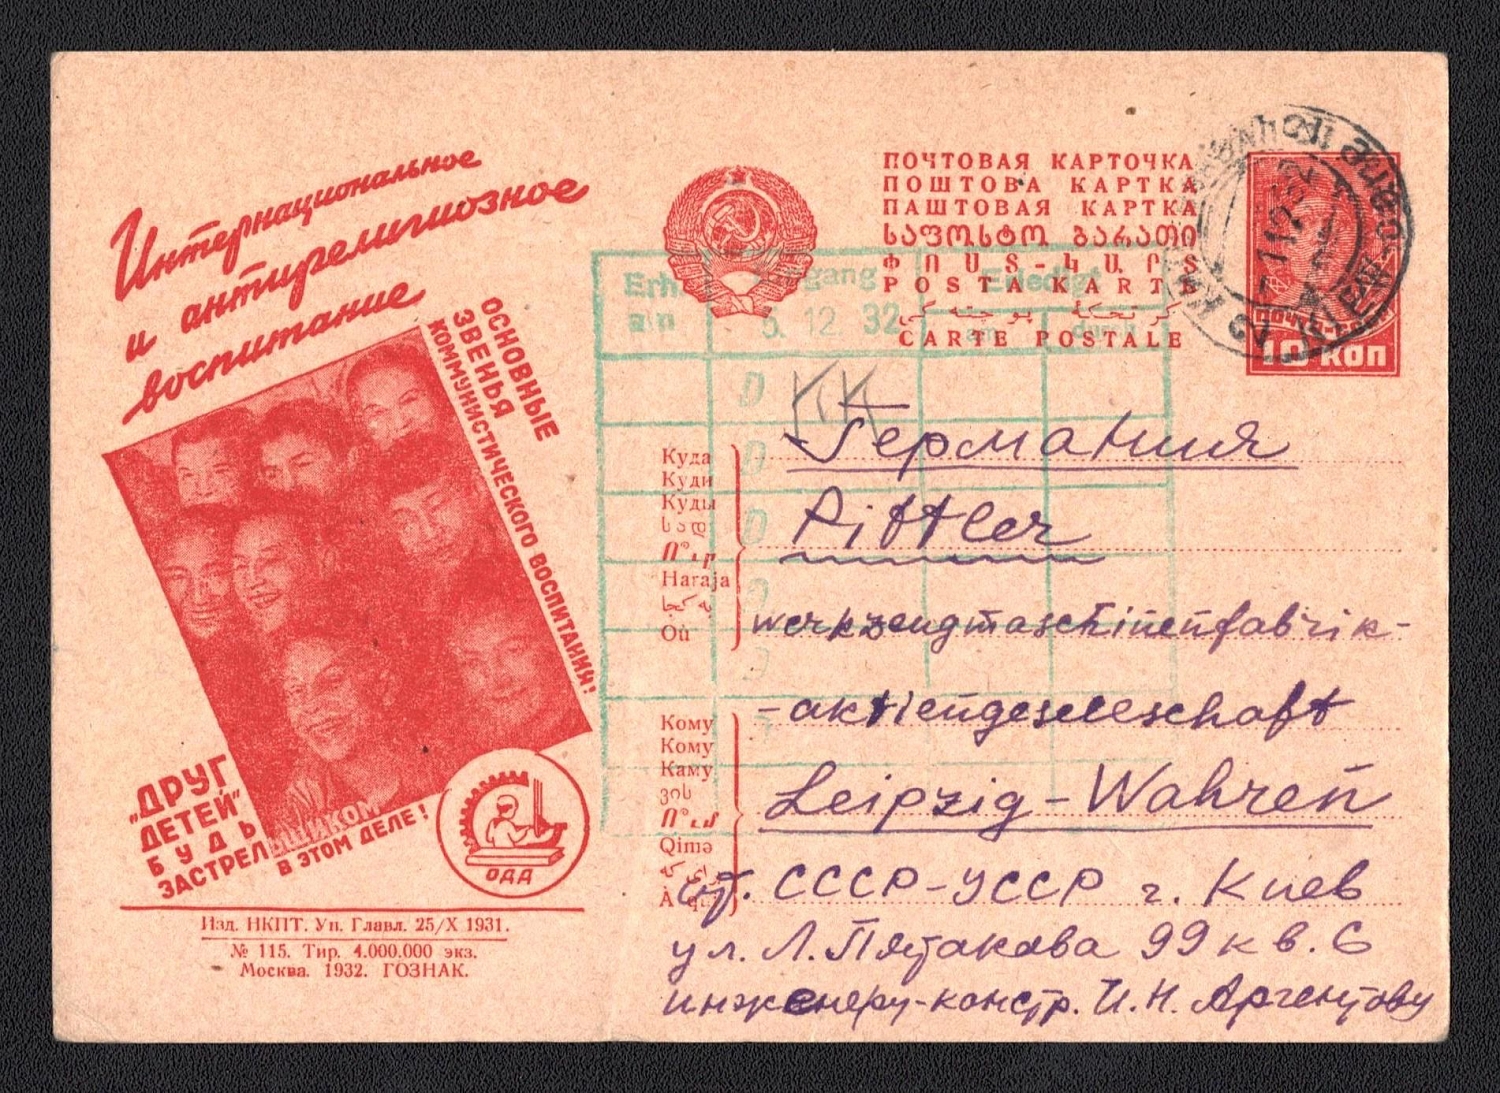 Интернациональное
и антирелигиозное
воспитание
ОСНОВНЫЕ
ЗВЕНЬЯ
КОММУНИСТИЧЕСКОГО ВОСПИТАНИЯ!
„ДРУГ
ДЕТЕЙ"
БУДЬ
ЗАСТРЕЛЬЩИКОМ
В ЭТОМ ДЕЛЕ!
ОДД
Изд. НКПТ. Уп. Главл. 25/X 1931.
№ 115. Тир. 4.000.000 экз.
Москва. 1932. ГОЗНАК.
ПОЧТОВАЯ КАРТОЧКА
ПОШТОВА КАРТКА
ПАШТОВАЯ КАРТКА
ᲡᲐᲤᲝᲡᲢᲝ ᲑᲐᲠᲐᲗᲘ
ՓՈՍՏ-ՔԱՐՏ
POSTA KARTЬ
CARTE POSTALE
10 КОП
KIEV
1 12 32
Eingang
Erledigt
5. 12. 32
an
durch
KK
Куда
Куди
Куды
სად
Ո՞ւր
Haraja
Où
Германия
Pittler
werkzeugmaschinenfabrik-
-aktiengesellschaft
Leipzig-Wahren
Кому
Кому
Каму
ვის
Ո՞ւմ
Qimə
À qui
СССР-УССР г. Киев
ул. Л. Пятакова 99 кв. 6
инженеру-констр. И. Н. Аргентову